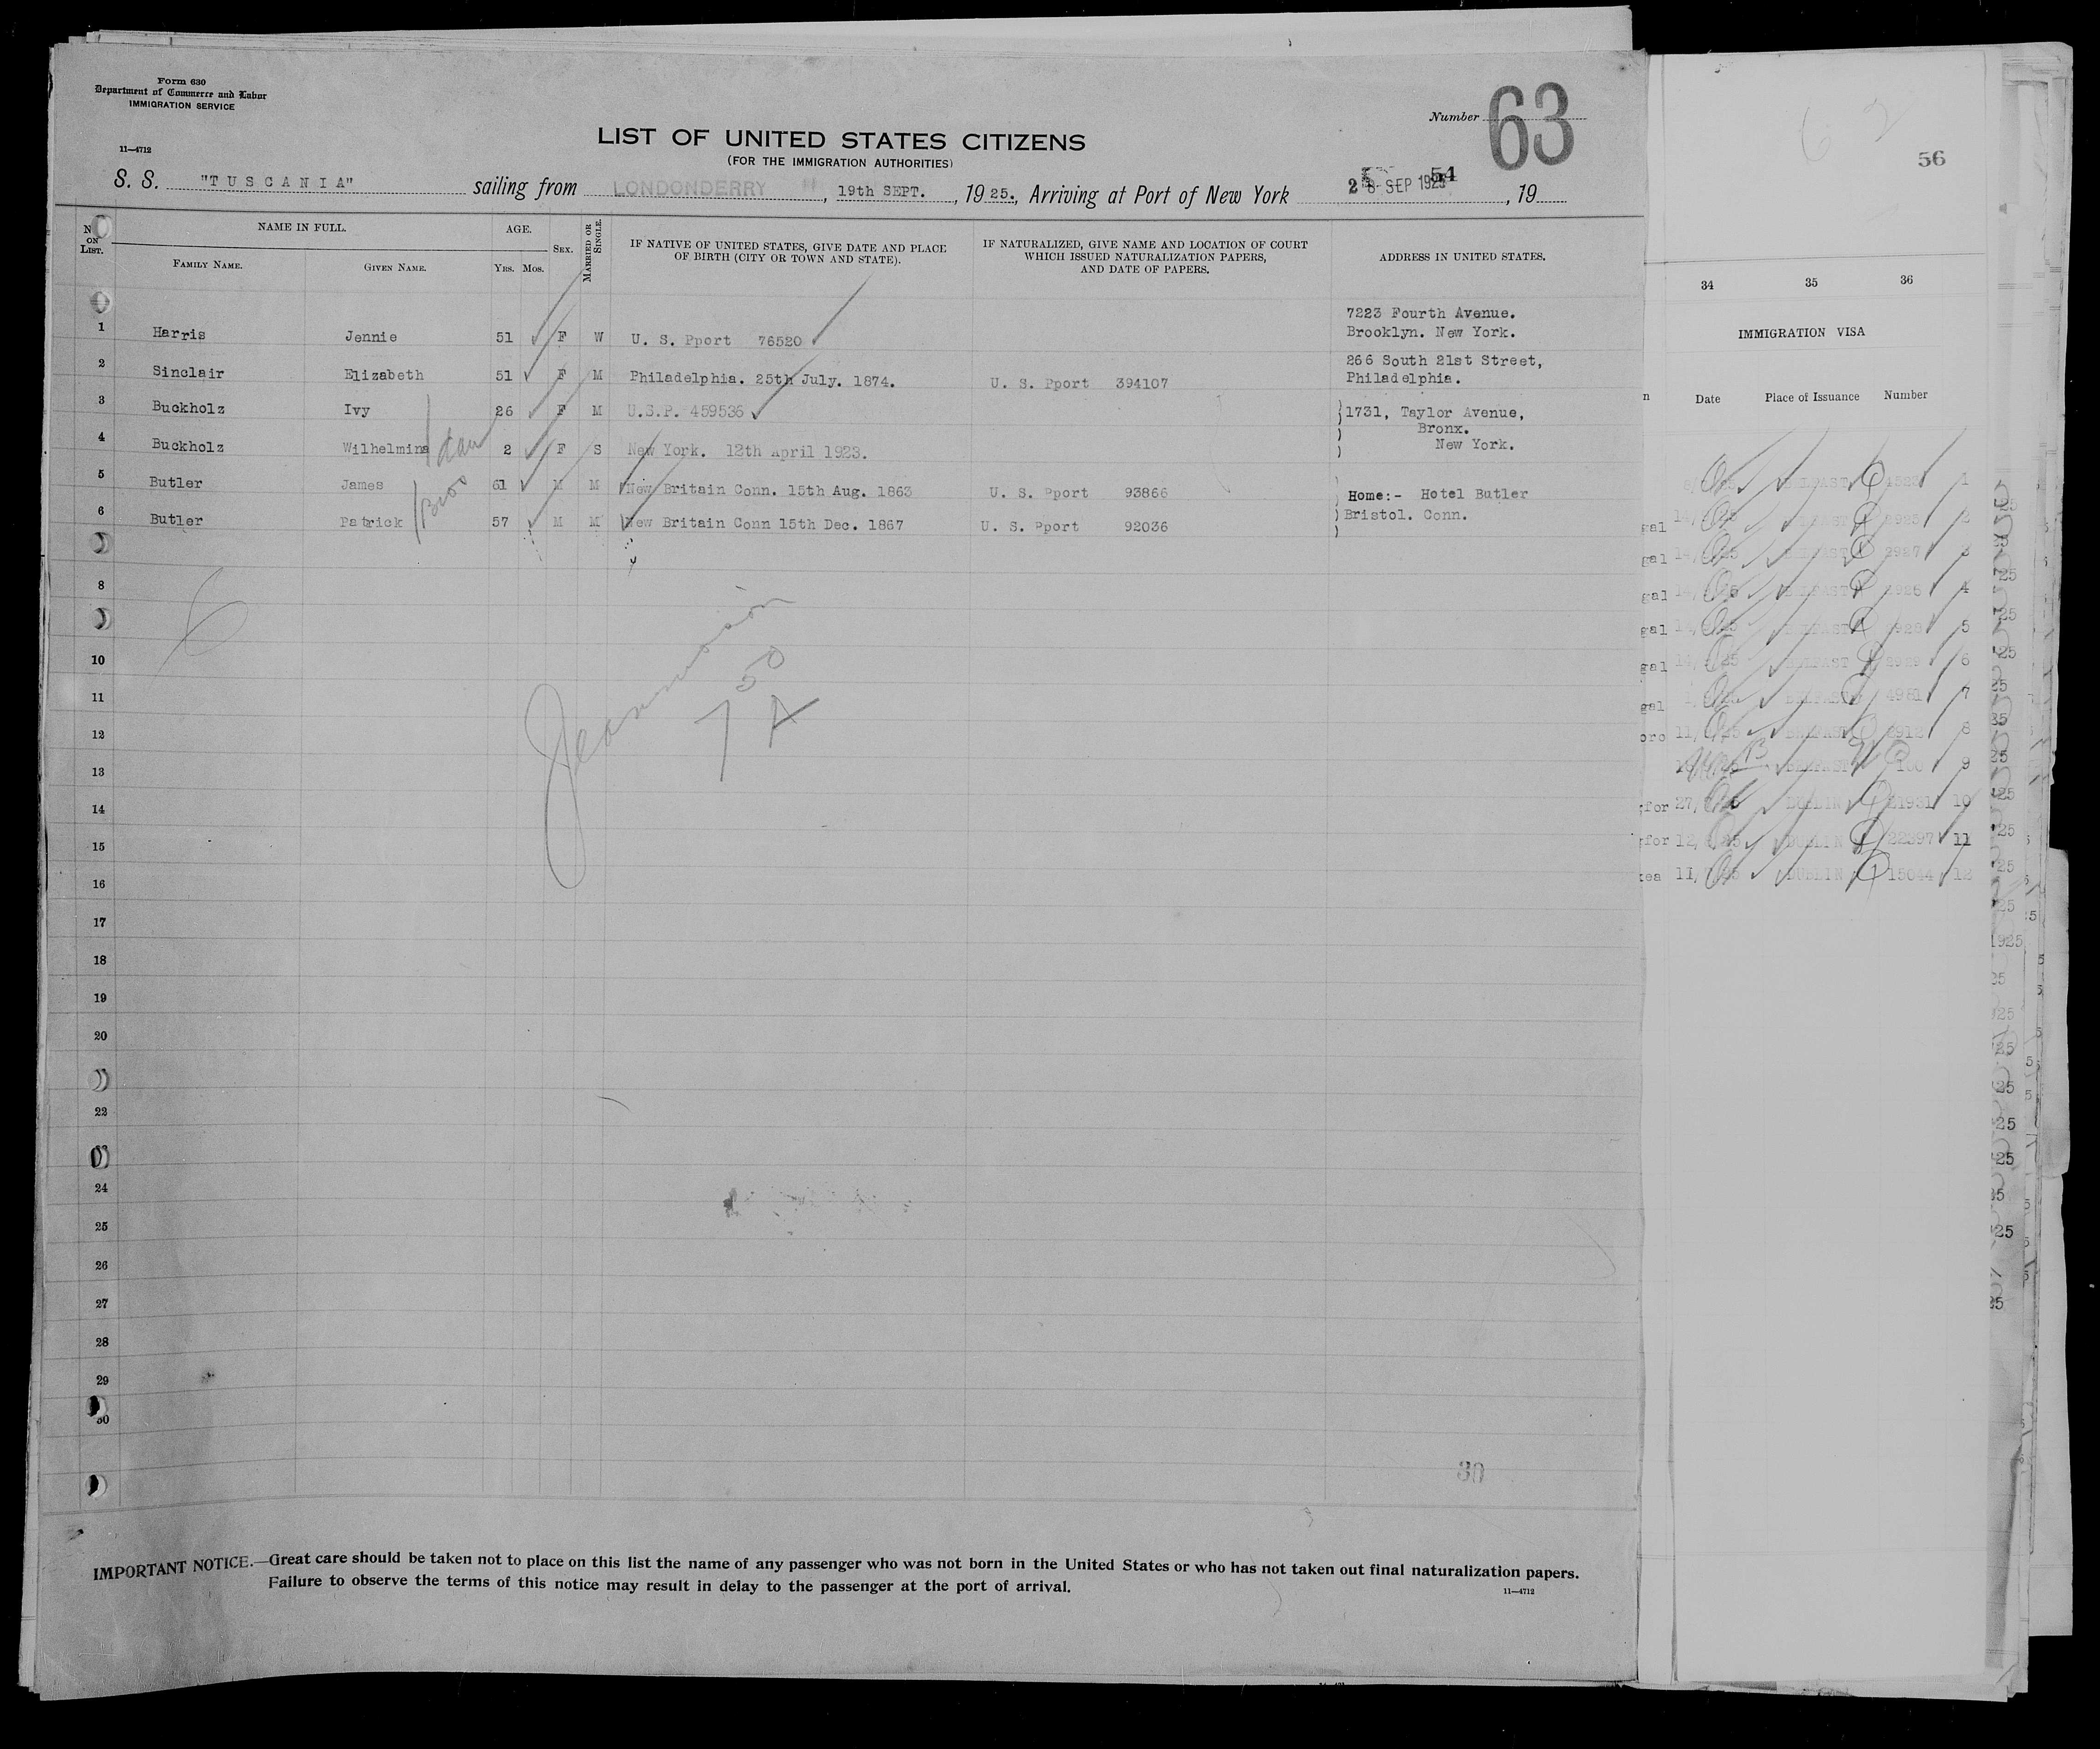 Form 630
Department of Commerce and Labor
IMMIGRATION SERVICE
11—4712
Number 63
LIST OF UNITED STATES CITIZENS
(FOR THE IMMIGRATION AUTHORITIES)
S. S. "TUSCANIA" sailing from LONDONDERRY, 19th SEPT., 1925., Arriving at Port of New York SEP 1925, 19
No. ON LIST. NAME IN FULL. AGE. SEX. MARRIED OR SINGLE. IF NATIVE OF UNITED STATES, GIVE DATE AND PLACE OF BIRTH (CITY OR TOWN AND STATE). IF NATURALIZED, GIVE NAME AND LOCATION OF COURT WHICH ISSUED NATURALIZATION PAPERS, AND DATE OF PAPERS. ADDRESS IN UNITED STATES.
FAMILY NAME. GIVEN NAME. YRS. MOS.
1 Harris Jennie 51 F W U. S. Pport 76520 7223 Fourth Avenue. Brooklyn. New York.
2 Sinclair Elizabeth 51 F M Philadelphia. 25th July. 1874. U. S. Pport 394107 266 South 21st Street, Philadelphia.
3 Buckholz Ivy 26 F M U.S.P. 459536 1731, Taylor Avenue, Bronx. New York.
4 Buckholz Wilhelmina dau 2 F S New York. 12th April 1923.
5 Butler James 61 M M New Britain Conn. 15th Aug. 1863 U. S. Pport 93866 Home:- Hotel Butler Bristol. Conn.
6 Butler Patrick Bros 57 M M New Britain Conn 15th Dec. 1867 U. S. Pport 92036
8
10
11
12
13
14
15
16
17
18
19
20
22
24
25
26
27
28
29
30
30
IMPORTANT NOTICE.—Great care should be taken not to place on this list the name of any passenger who was not born in the United States or who has not taken out final naturalization papers.
Failure to observe the terms of this notice may result in delay to the passenger at the port of arrival.
11—4712
56
34 35 36
IMMIGRATION VISA
Date Place of Issuance Number
1
gal 2
gal 3
gal 4
gal 5
gal BELFAST 6
gal BELFAST 4961 7
BELFAST 8
9
for 27 DUBLIN 10
for 12 DUBLIN 22397 11
11 DUBLIN 15044 12